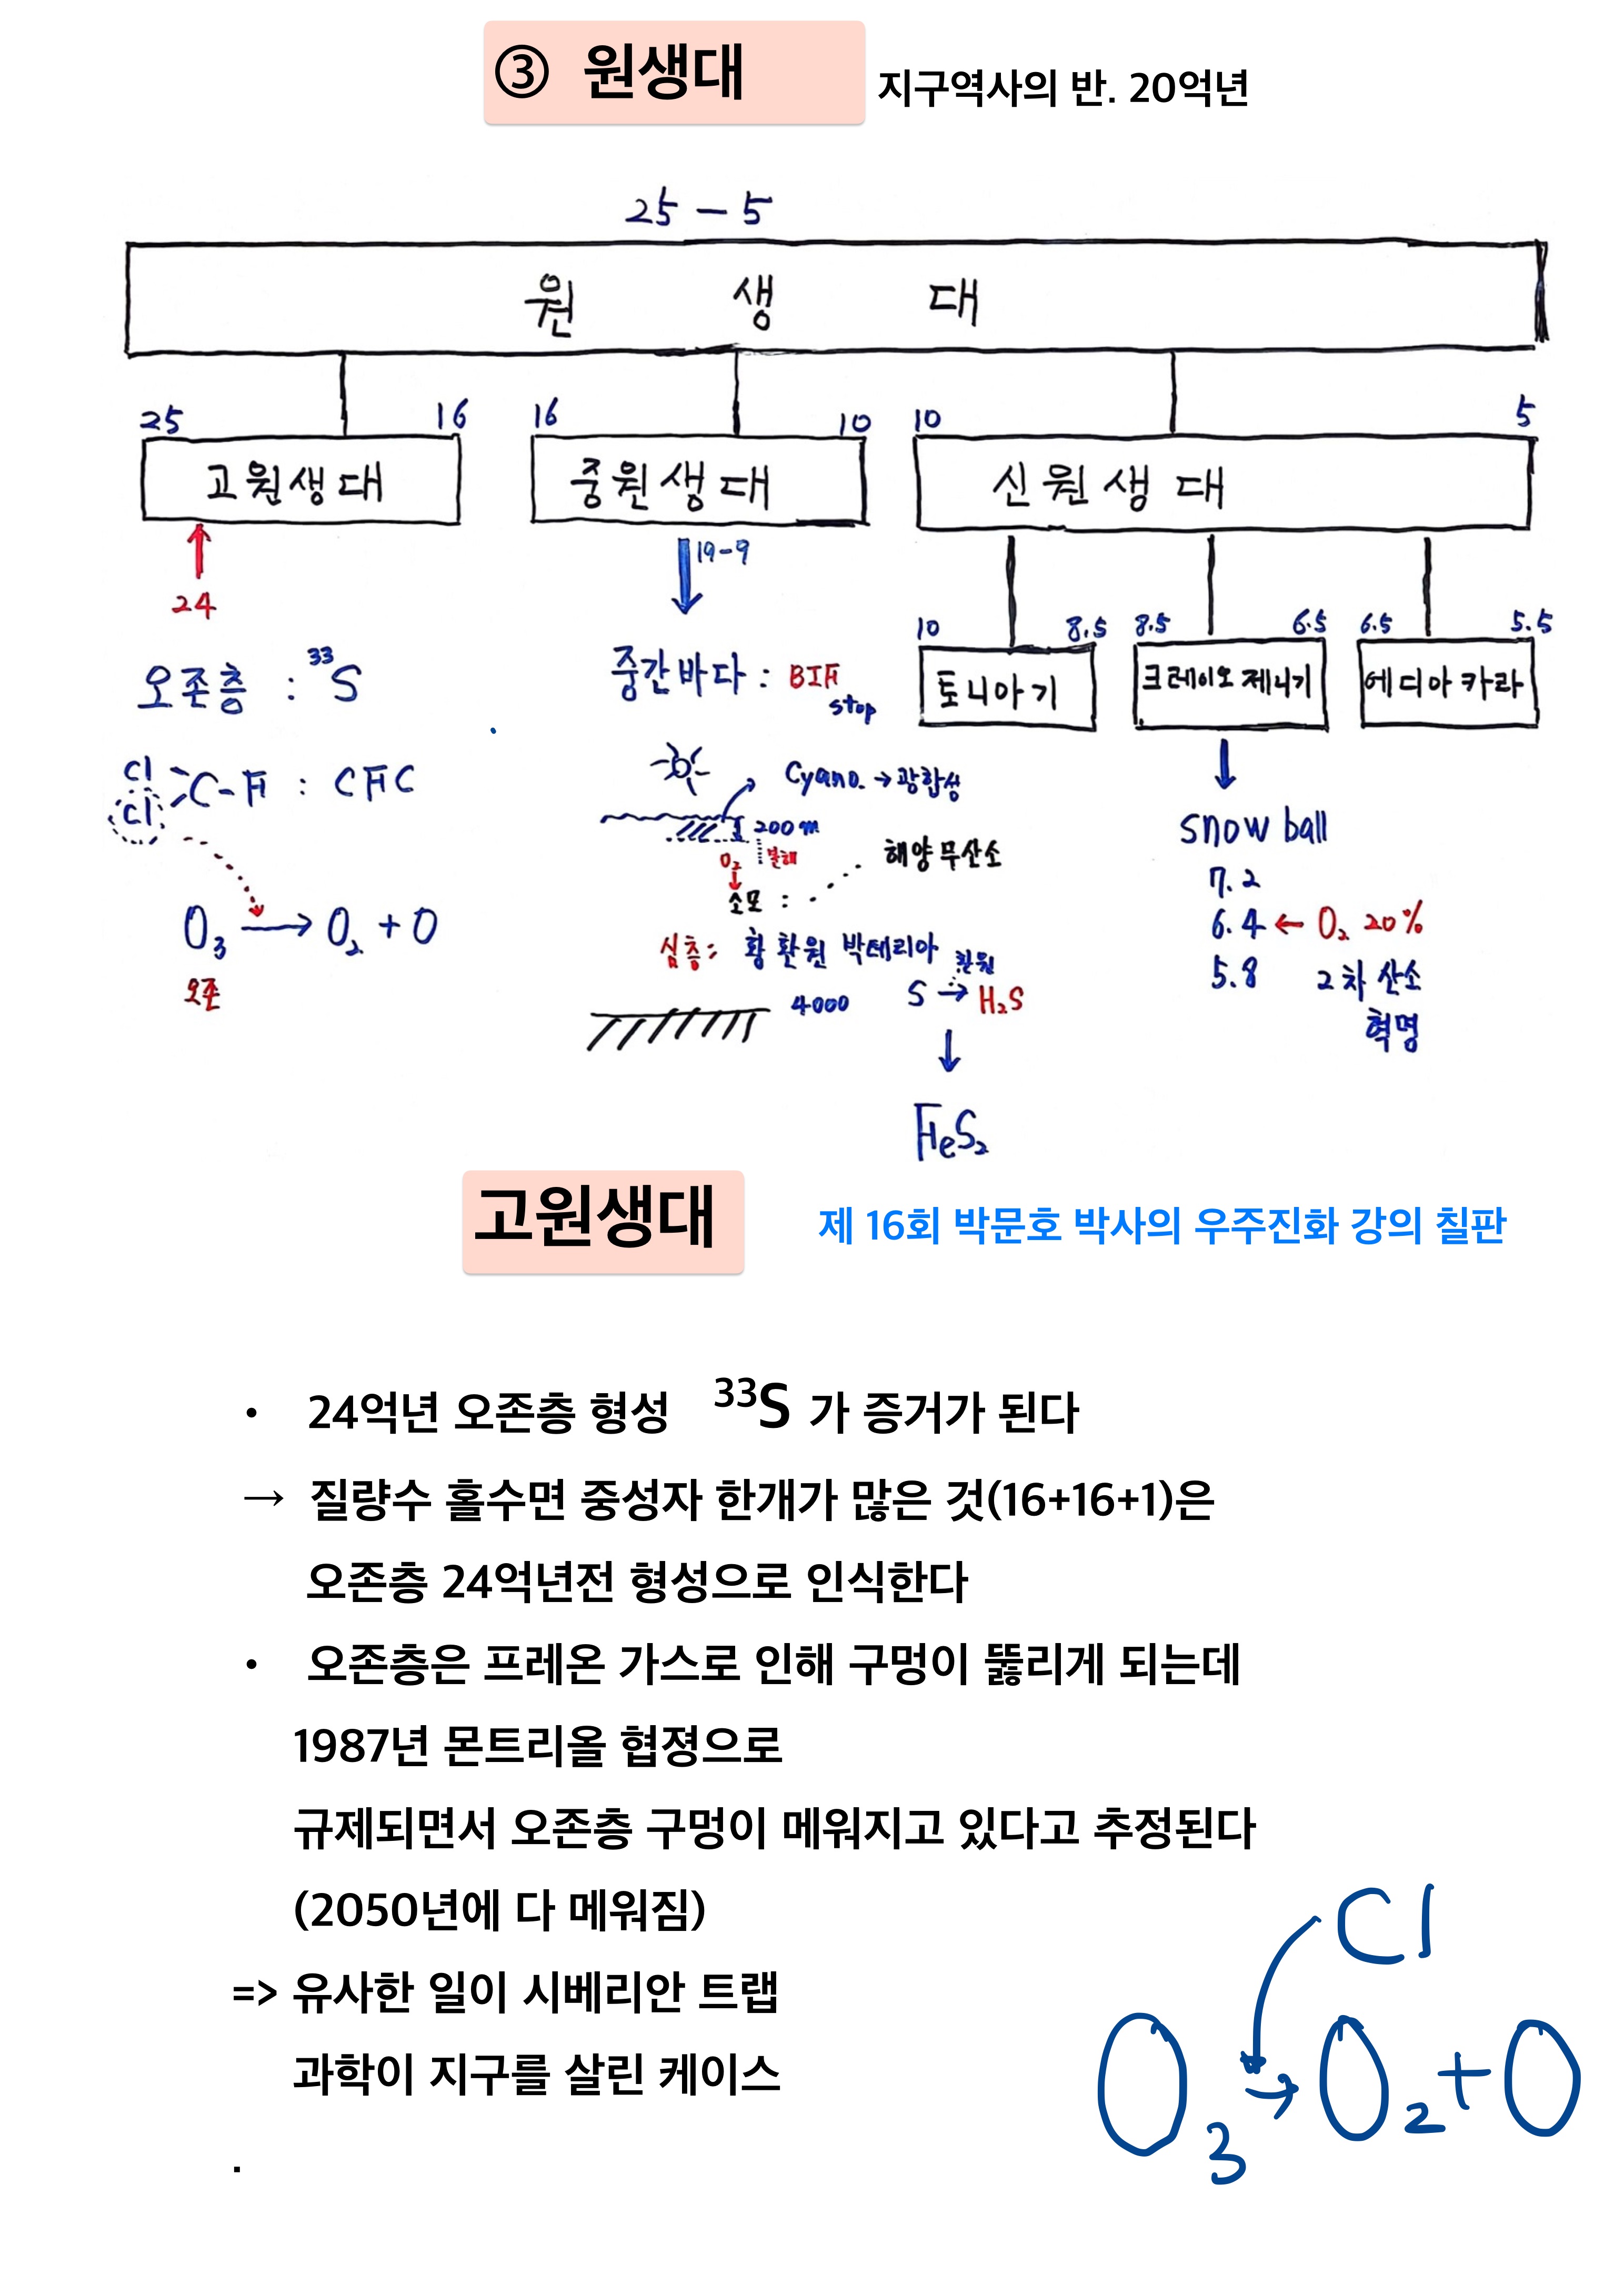 ③ 원생대 지구역사의 반. 20억년
25 - 5
원 생 대
25 16 16 10 10 5
고원생대 중원생대 신원생대
24
19-9
10 8.5 8.5 6.5 6.5 5.5
토니아기 크레이오제니기 에디아카라
오존층 : ³³S
중간바다 : BIF
stop
Cl
Cl >C-F : CFC
O₃ → O₂ + O
오존
Cyano. → 광합성
200m
O₂ 분해
해양무산소
소모 :
심층: 황환원 박테리아
환원
4000 S → H₂S
FeS₂
snow ball
7.2
6.4 ← O₂ 20%
5.8 2차 산소
혁명
고원생대 제 16회 박문호 박사의 우주진화 강의 칠판
• 24억년 오존층 형성 ³³S 가 증거가 된다
→ 질량수 홀수면 중성자 한개가 많은 것(16+16+1)은
오존층 24억년전 형성으로 인식한다
• 오존층은 프레온 가스로 인해 구멍이 뚫리게 되는데
1987년 몬트리올 협졍으로
규제되면서 오존층 구멍이 메워지고 있다고 추정된다
(2050년에 다 메워짐)
=> 유사한 일이 시베리안 트랩
과학이 지구를 살린 케이스
.
Cl
O₃ → O₂ + O